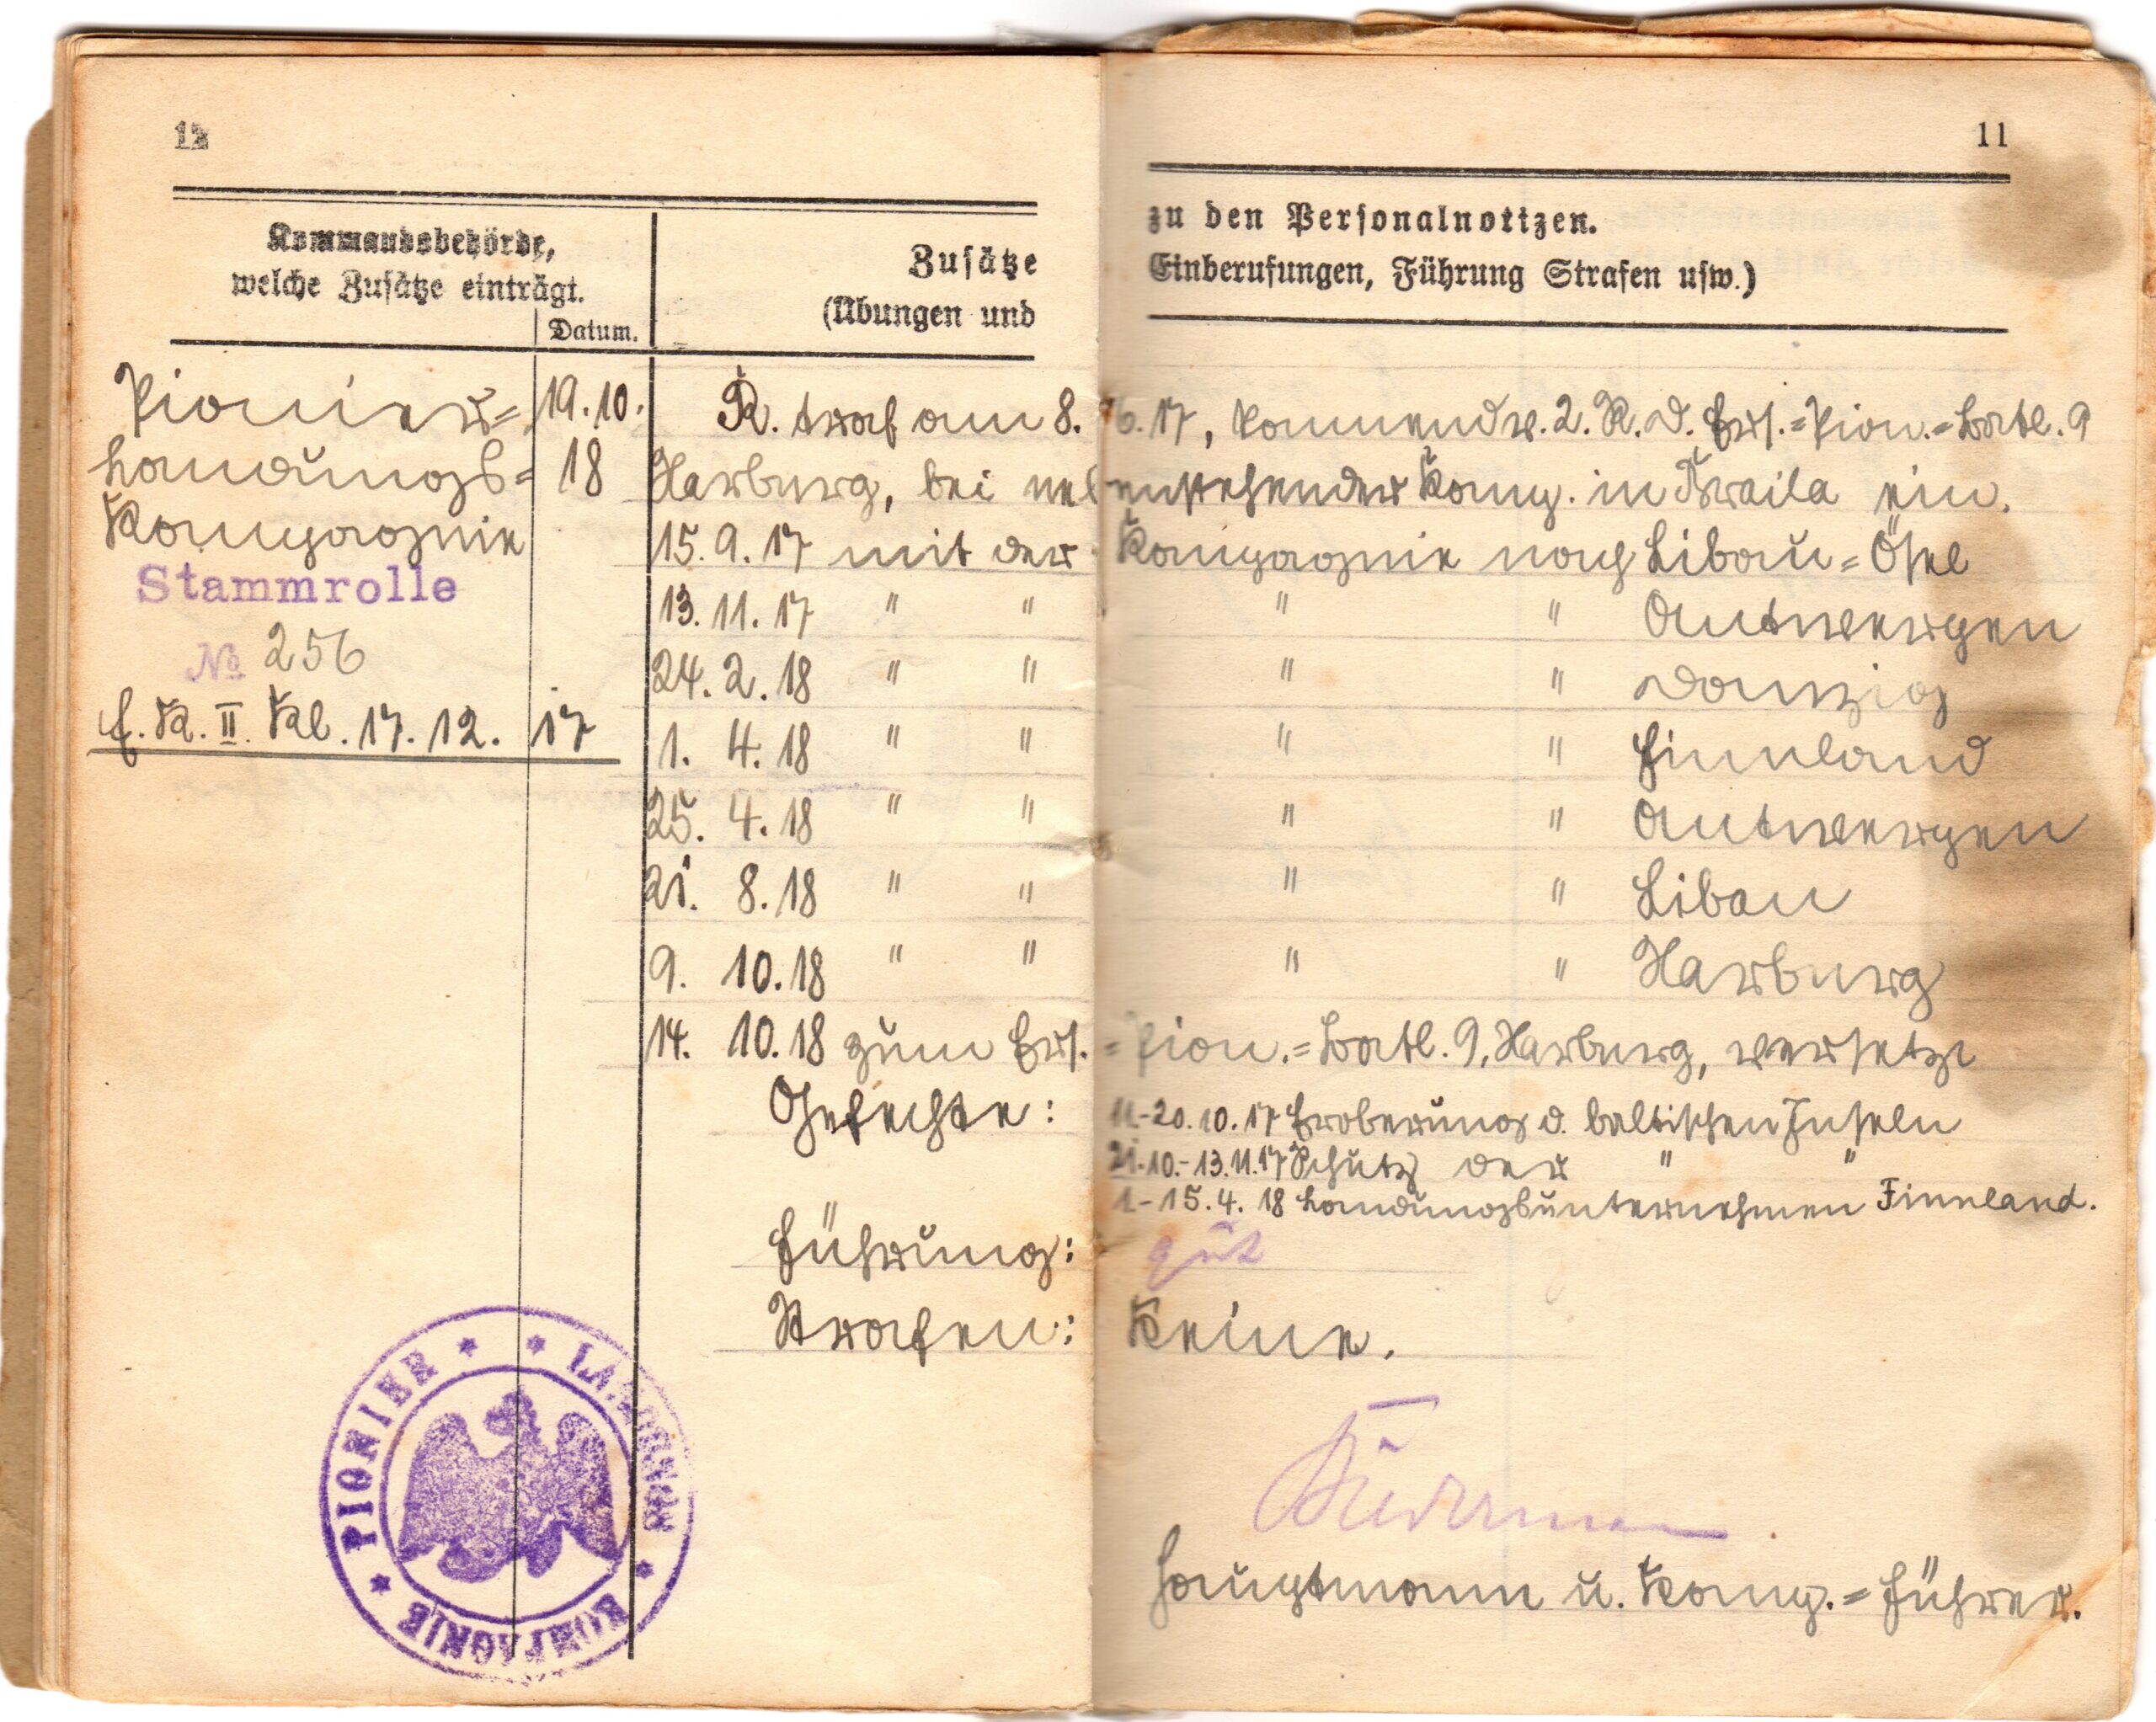 12
11
Kommandobehörde,
welche Zusätze einträgt.
Datum.
Zusätze zu den Personalnotizen.
(Übungen und Einberufungen, Führung Strafen usw.)
Pionier=
landungs=
Kompagnie
19.10.
18
Stammrolle
№ 256
E. K. II. Kl. 17. 12. 17
R. traf am 8. 6. 17, kommend v. 2. R. d. Ers.=Pion.=Batl. 9
Harburg, bei nebenstehender Komp. in Braila ein.
15. 9. 17 mit der Kompagnie nach Libau=Ösel
13. 11. 17 " " " " Antwerpen
24. 2. 18 " " " " Danzig
1. 4. 18 " " " " Finnland
25. 4. 18 " " " " Antwerpen
21. 8. 18 " " " " Libau
9. 10. 18 " " " " Harburg
14. 10. 18 zum Ers.=Pion.=Batl. 9, Harburg, versetzt
Gefechte: 11.-20. 10. 17 Eroberung d. baltischen Inseln
21.10.-13.11.17 Schutz der " "
1.-15. 4. 18 Landungsunternehmen Finnland.
Führung: gut
Strafen: Keine.
Hauptmann u. Komp.=Führer.
* PIONIER * * LANDUNGS * KOMPAGNIE